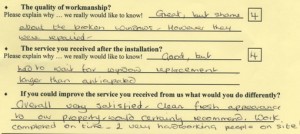 • The quality of workmanship?
Please explain why ... we really would like to know! Great, but shame 4
about the broken windows. However they
were repaired.
• The service you received after the installation?
Please explain why ... we really would like to know! Good, but 4
had to wait for window replacement
longer than anticipated
• If you could improve the service you received from us what would you do differently?
Overall very satisfied. Clean fresh appearance
to our property. Would certainly recommend. Work
completed on time. 2 very hardworking people on site